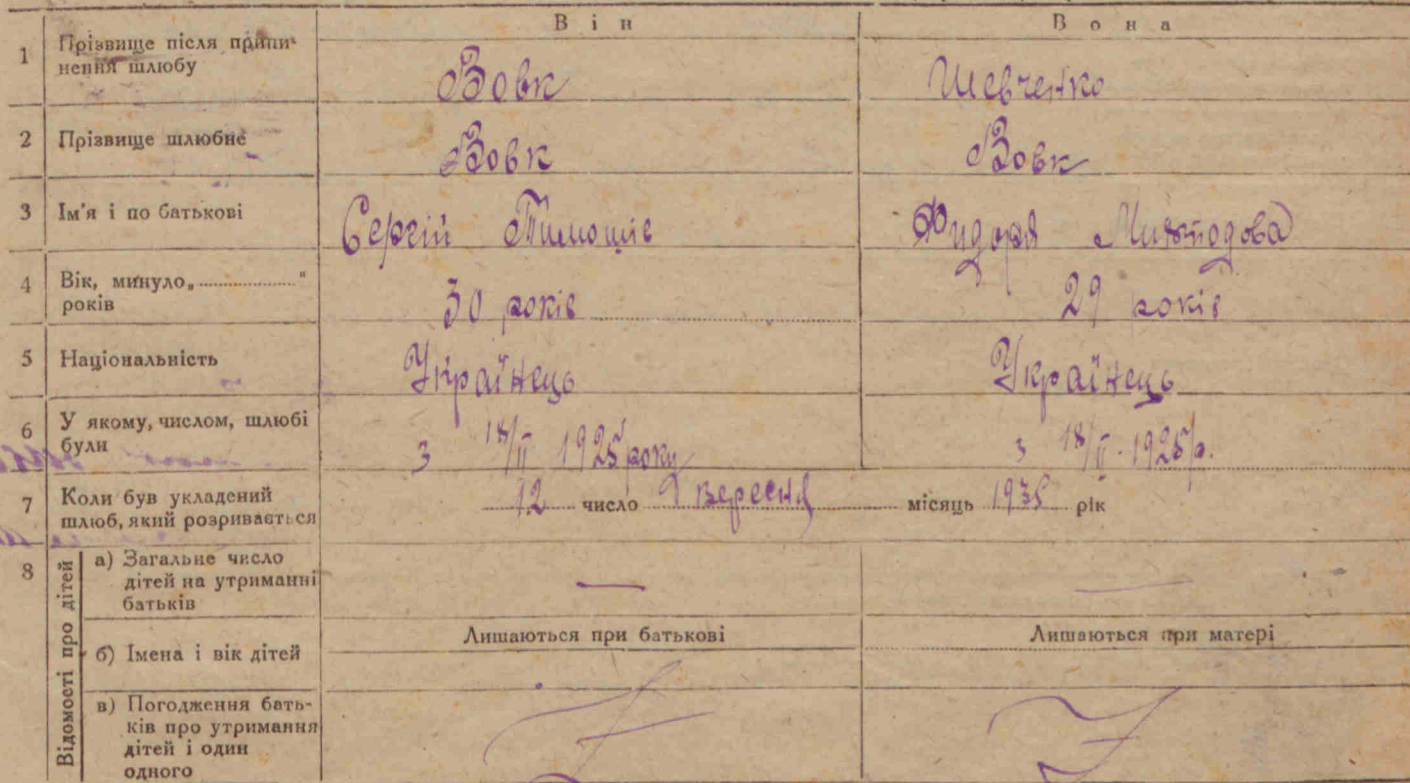 Він Вона
1 Прізвище після припинення шлюбу Вовк Шевченко
2 Прізвище шлюбне Вовк Вовк
3 Ім'я і по батькові Сергій Тимошів
4 Вік, минуло „..........“ років 30 років 29 років
5 Національність Українець Українець
6 У якому, числом, шлюбі були з 18/II 1925 року з 18/II-1925 р.
7 Коли був укладений шлюб, який розривається 12 число Вересня місяць 1935 рік
8 Відомості про дітей
а) Загальне число дітей на утриманні батьків — —
Лишаються при батькові Лишаються при матері
б) Імена і вік дітей
в) Погодження батьків про утримання дітей і один одного